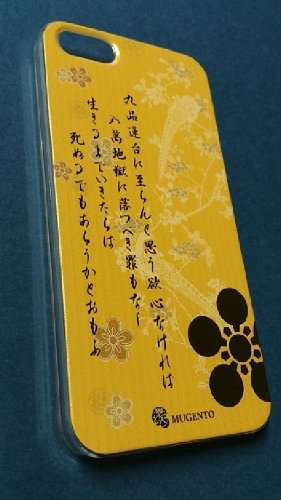 九品蓮台に至らんと思う欲心なければ
八萬地獄に落つべき罪もなし
生きるまでいきたらば
死ぬるでもあろうかとおもふ
MUGENTO